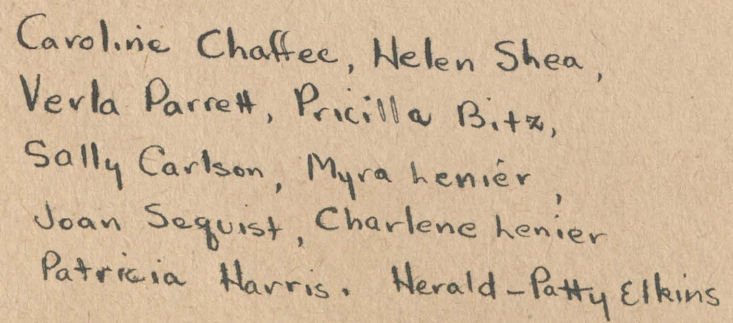 Caroline Chaffee, Helen Shea,
Verla Parrett, Pricilla Bitz,
Sally Carlson, Myra Lenier,
Joan Sequist, Charlene Lenier
Patricia Harris. Herald-Patty Elkins